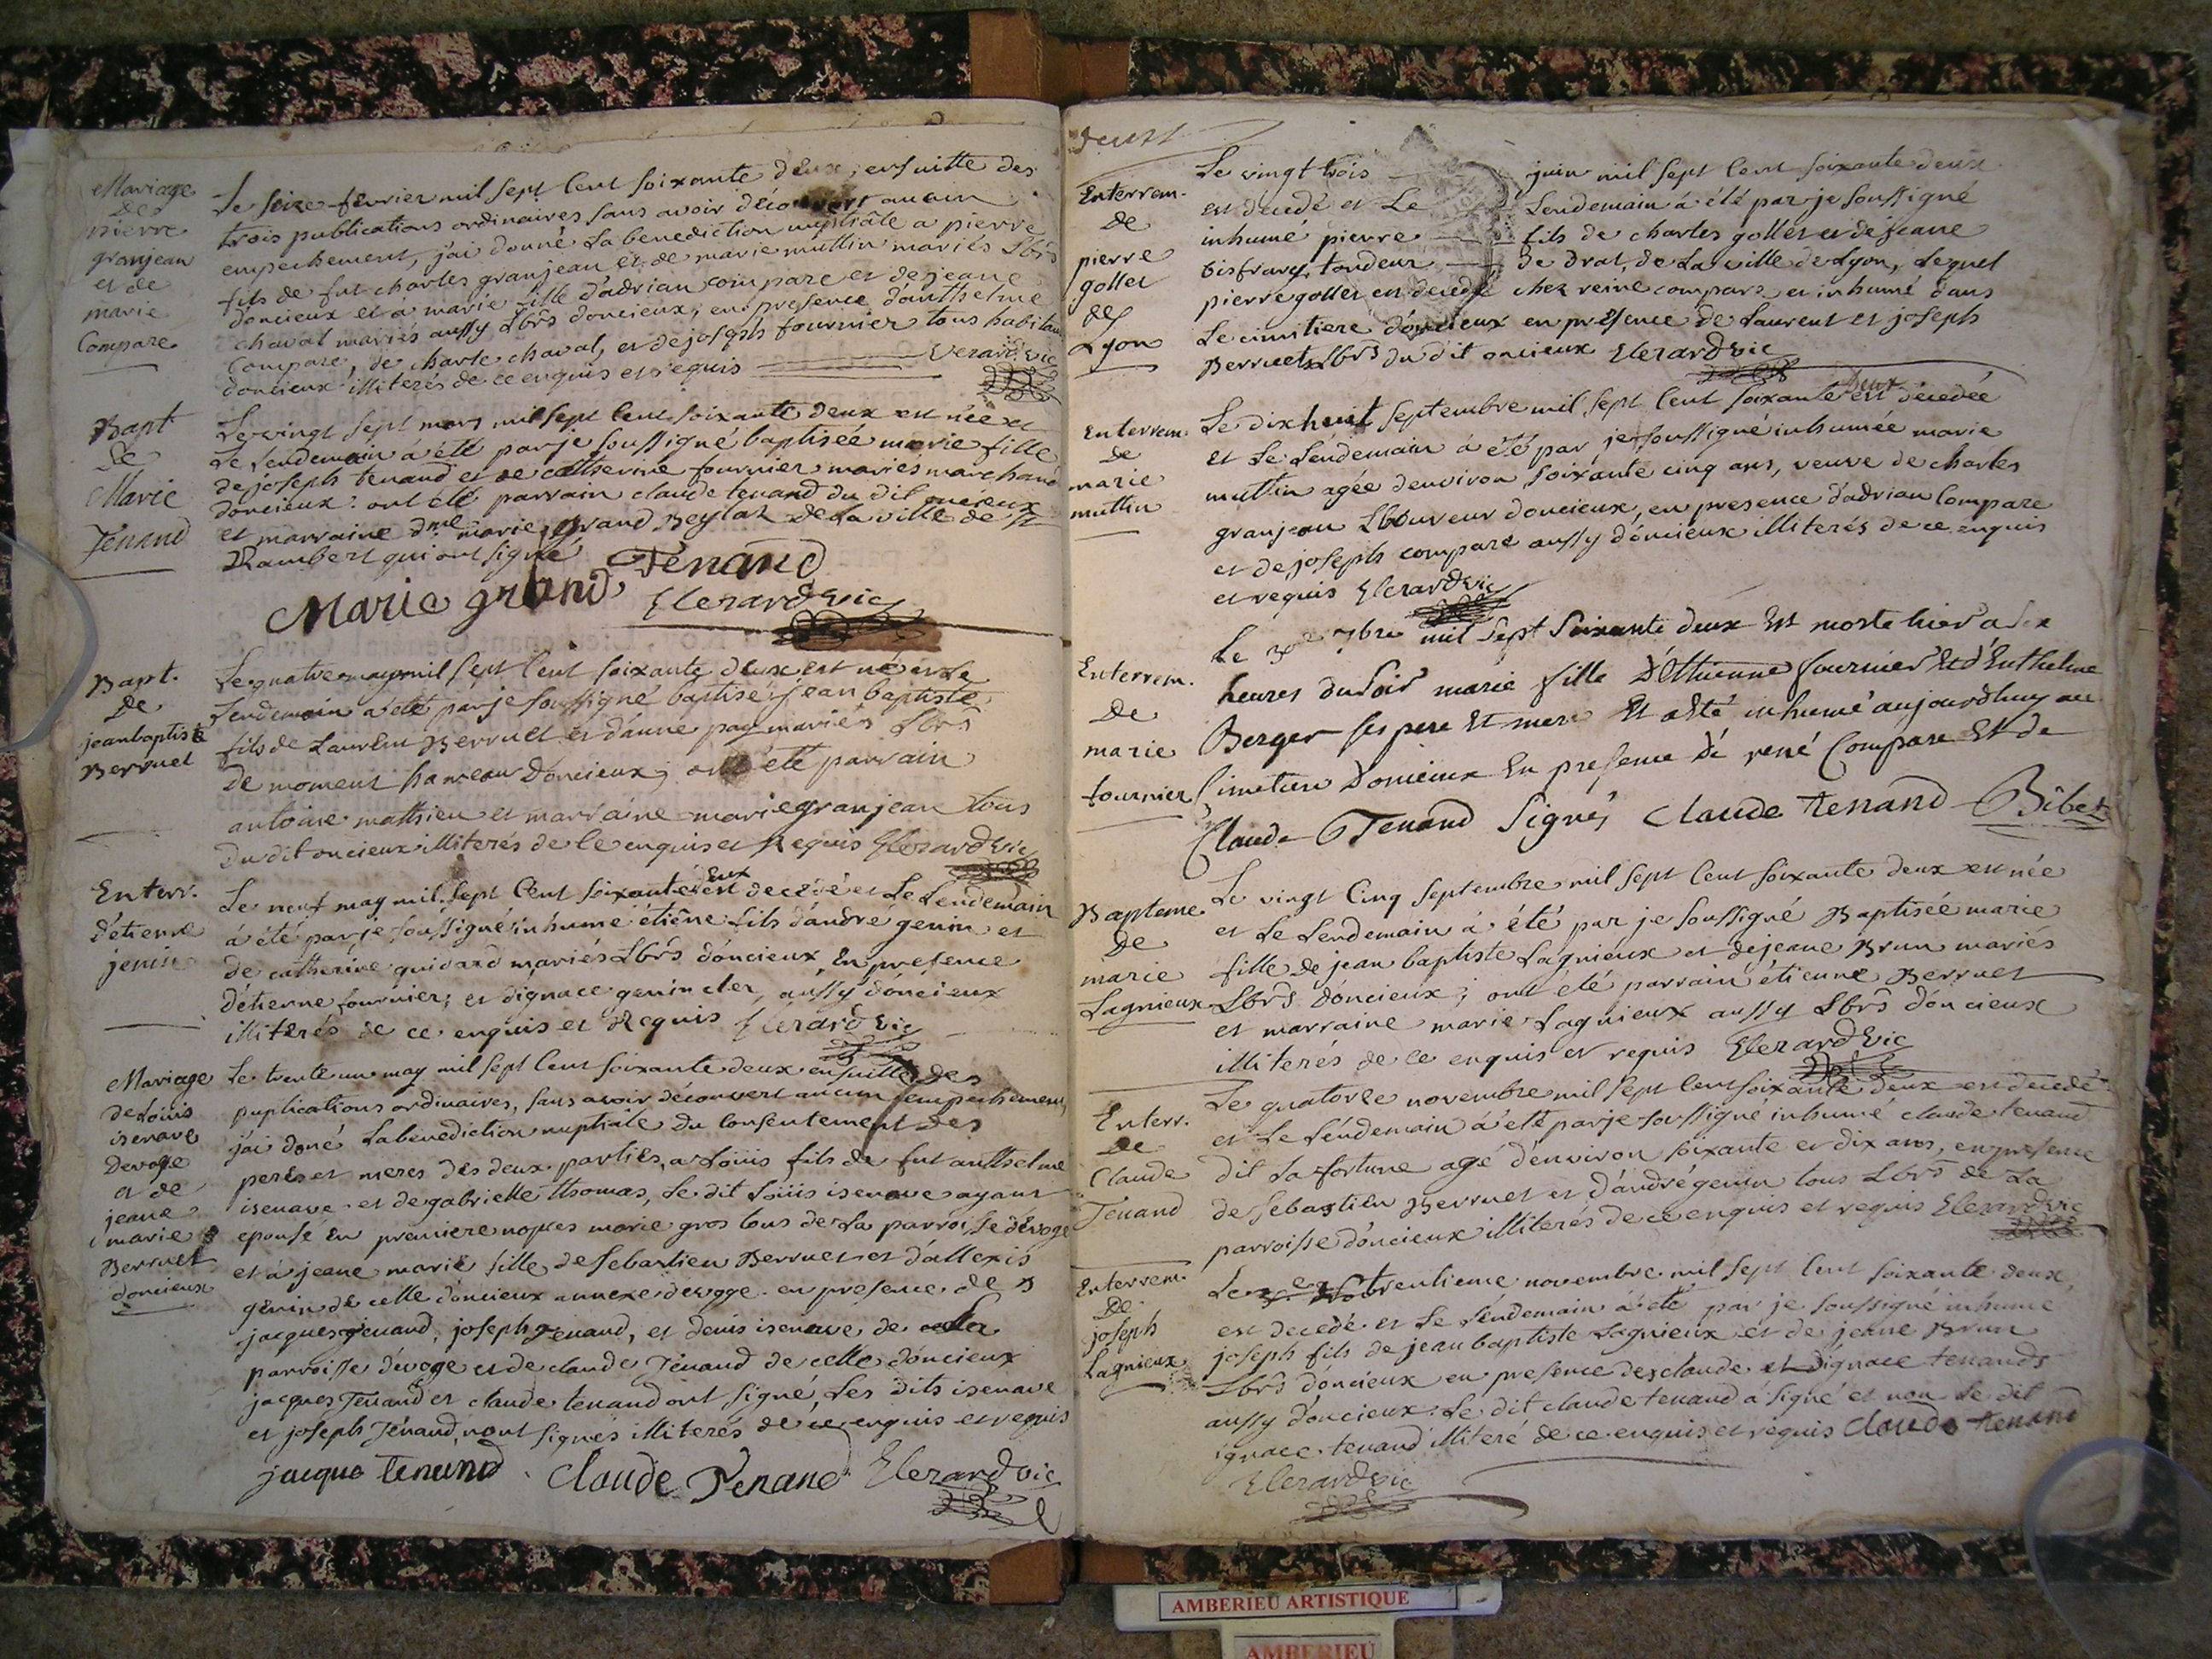 Mariage
De
pierre
granjean
et de
marie
Compare
Le seize fevrier mil sept Cent soixante Deux, ensuitte des
trois publications ordinaires sans avoir découvert aucun
empechement, j'ai donné La benediction nuptiale a pierre
fils de fut charles granjean et de marie muttin mariés Lbrs
doncieux et à marie fille d'adrian compare et de jeane
chavat mariés aussy Lbrs doncieux, en presence d'anthelme
Compare, de charle chavat, et de joseph fournier tous habitans
doncieux illiterés de ce enquis et requis Elerard vic
Bapt
De
Marie
Tenand
Le vingt sept mars mil sept Cent soixante deux est née et
Le Lendemain à été par je soussigné baptisée marie fille
de joseph tenand et de catherine fournier mariés marchand
doncieux: ont été parrain claude tenand du dit oncieux
et marraine dme marie grand Reylat De La ville de St
Rambert qui ont signé
Tenand
Marie grand Elerard vic
Bapt.
De
jean baptiste
Berruet
Le quatre may mil sept Cent soixante deux est né et Le
Lendemain à été par je soussigné baptisé jean baptiste
fils de Laurent Berruet et d'anne pay mariés Lbrs
De moment hameau D'oncieux; ont été parrain
antoine mathieu et marraine marie granjean tous
Du dit oncieux illiterés de Ce enquis et Requis Elerard vic
Enterr.
d'étienne
jenin
Le neuf may mil sept Cent soixante deux est decedé et Le Lendemain
à été par je soussigné inhumé étiene fils d'andré genin et
de catherine guidard mariés Lbrs d'oncieux En presence
d'étienne fournier, et d'ignace genin cler, aussy d'oncieux
illiterés de ce enquis et Requis Elerard vic
Mariage
de Loüis
isenave
Devoge
et de
jeane
marie
Berruet
doncieux
Le trente un may mil sept Cent soixante deux ensuitte Des
puplications ordinaires, sans avoir découvert aucun empechement,
j'ai doné La benediction nuptiale du Consentement des
peres et meres des deux parties, a Loüis fils de fut anthelme
isenave et de gabrielle thomas, Le dit Loüis isenave ayant
epousé En premiere nopces marie gros tous de La parroisse d'évoge
et à jeane marie fille de Sebastien Berruet et d'allexis
genin de celle d'oncieux annexe devoge. en presence de
jacques tenand, joseph Tenand, et denis isenave de La
parroisse d'évoge et de claude Tenand de celle d'oncieux
jacques Tenand et claude tenand ont signé, Les dits isenave
et joseph Tenand, n'ont signés illiterés de ce enquis et requis
jacque tenand Claude Tenand Elerard vic
deux
Enterrem.
De
pierre
gollet
de
Lyon
Le vingt trois juin mil sept Cent soixante deux
est decedé et Le Lendemain à été par je soussigné
inhumé pierre fils de charles gollet et de jeane
bisfrary, tondeur De drat, de La ville de Lyon, Lequel
pierre gollet est decedé chez reine compare et inhumé dans
Le cimitiere d'oncieux en presence de Laurent et joseph
Berruet Lbrs du dit oncieux Elerard vic
Enterrem.
De
marie
muttin
Le dix huit septembre mil sept Cent soixante Deux est decedée
et Le Lendemain à été par je soussigné inhumée marie
muttin agée denviron soixante cinq ans, veuve de charles
granjean Lboureur doncieux, en presence d'adrian Compare
et de joseph compare aussy d'oncieux illiterés de ce enquis
et requis Elerard vic
Enterrem.
De
marie
fournier
Le 30e 7bre mil sept Soixante deux Est morte hier a six
heures du soir marie fille d'Ettienne fournier Et d'Enthelme
Berger ses pere Et mere Et a Eté inhumé aujourd'huy au
Cimetiere Doncieux En presence de rené Compare Et de
Claude Tenand Signés Claude tenand Bibet
Bapteme
De
marie
Lagnieux
Le vingt Cinq septembre mil sept Cent soixante deux est née
et Le Lendemain à été par je soussigné Baptisée marie
fille de jean baptiste Lagnieux et de jeane Brun mariés
Lbrs D'oncieux; ont été parrain étienne Berruet
et marraine marie Lagnieux aussy Lbrs d'oncieux
illiterés de Ce enquis et requis Elerard vic
Enterr.
De
Claude
Tenand
Le quatorze novembre mil sept Cent soixante deux est decedé
et Le Lendemain à été par je soussigné inhumé claude tenand
dit La fortune agé d'environ soixante et dix ans, en presence
de Sebastien Berruet et d'andré genin tous Lbrs de La
parroisse d'oncieux illiterés de ce enquis et requis Elerard vic
Enterrem.
De
joseph
Lagnieux
Le trentieme novembre mil sept Cent soixante deux
est decedé et Le Lendemain à été par je soussigné inhumé
joseph fils de jean baptiste Lagnieux et de jeane Brun
Lbrs d'oncieux en presence de claude et d'ignace tenands
aussy d'oncieux. Le dit claude tenand a signé et non Le dit
ignace tenand illiteré de ce enquis et requis Claude tenand
Elerard vic
AMBERIEU ARTISTIQUE
AMBERIEU